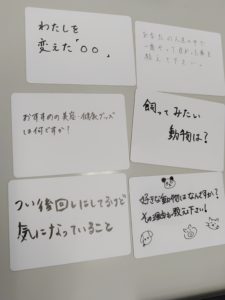 わたしを
変えた「〇〇」
あなたの人生の中で
一番
教えて下さい。
おすすめの美容・健康グッズ
は何ですか?
飼ってみたい
動物は?
つい後回しにしてるけど
気になっていること
好きな動物はなんですか?
その理由も教え下さい!